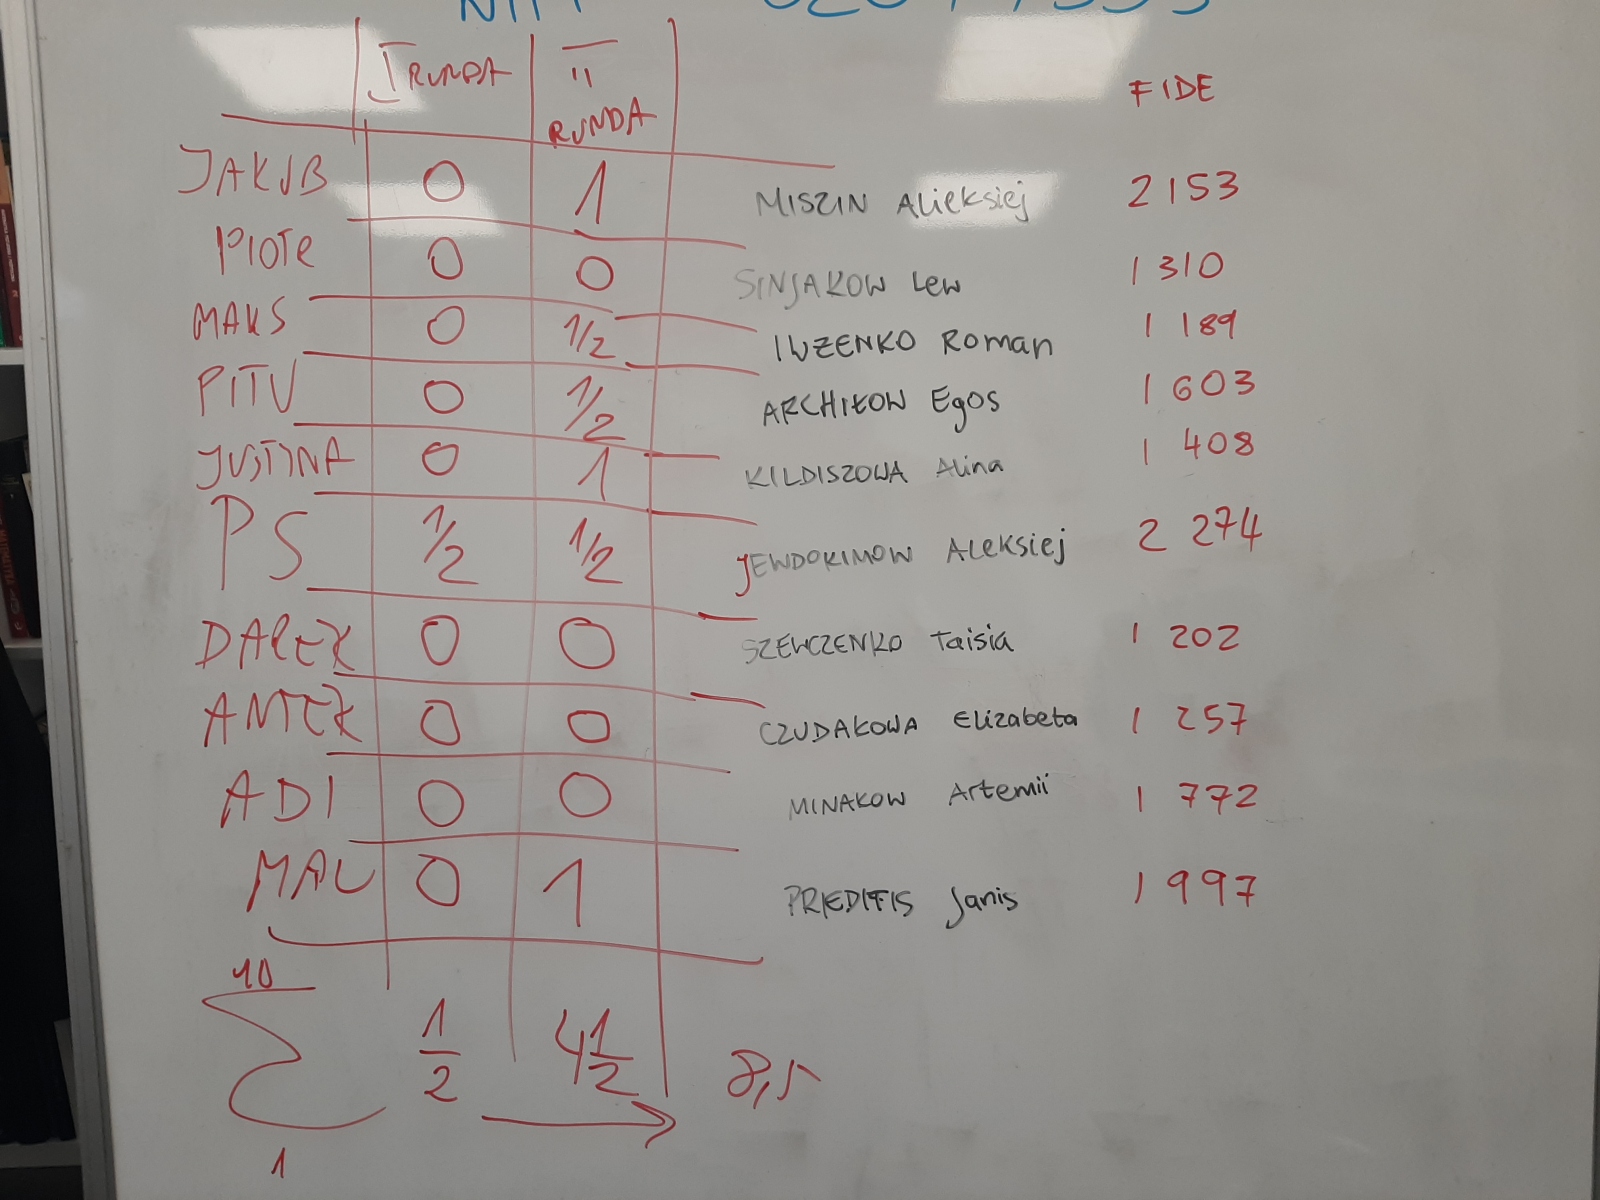 I RUNDA II RUNDA FIDE
JAKUB 0 1 MISZIN Alieksiej 2153
PIOTR 0 0 SINJAKOW Lew 1310
MAKS 0 1/2 IWZENKO Roman 1189
PITU 0 1/2 ARCHIŁOW Egos 1603
JUSTYNA 0 1 KILDISZOWA Alina 1408
PS 1/2 1/2 JEWDOKIMOW Aleksiej 2274
DAREK 0 0 SZEWCZENKO Taisia 1202
ANTEK 0 0 CZUDAKOWA Elizabeta 1257
ADI 0 0 MINAKOW Artemii 1772
MAU 0 1 PRIEDITIS Janis 1997
10
Σ 1/2 4 1/2 → 8,5
1